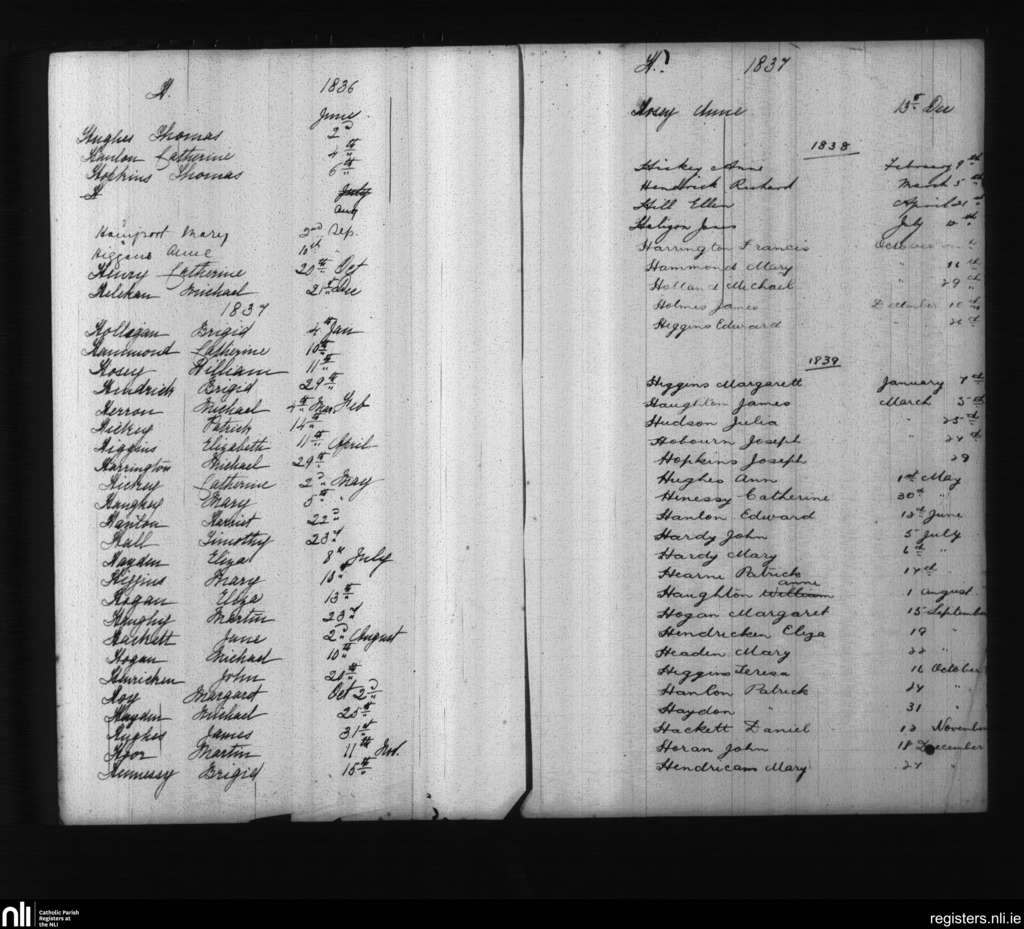 H. 1836
June
Hughes Thomas 2d
Hanlon Catherine 4th
Hopkins Thomas 6th
H July
Aug
Mary 2nd Sep.
Higgins Anne 10th
Henry Catherine 20th Oct
Michael 21st Dec
1837
Hollogan Brigid 4th Jan
Hammond Catherine 10th
Hosey William 11th
Hendrick Brigid 29th
Herron Michael 4th Mar. Feb
Hickey Patrick 14th
Higgins Elizabeth 11th April
Harrington Michael 29th
Hickey Catherine 2d May
Mary 5th "
Hanlon Harriet 22d
Hall Timothy 23d
Hayden Eliza 8th July
Higgins Mary 10"
Hogan Eliza 13th
Haughy Martin 23d
Hackett Jane 2d August
Hogan Michael 10th
Henricken John 20th
Hoy Margaret Oct 2d
Hayden Michael 25th
Hughes James 31st
Martin 11th Nov
Hennessy Brigid 15th
H. 1837
Hosey Anne 13th Dec
1838
Hickey Ann February 9th
Hendrick Richard March 5th
Hill Ellen April 21st
Haligon James July 10th
Harrington Francis October
Hammond Mary " 16th
Holland Michael " 29th
Holmes James December 10th
Higgins Edward " 26th
1839
Higgins Margarett January 7th
Haughton James March 5th
Hudson Julia " 25th
Hobourn Joseph " 24th
Hopkins Joseph 29
Hughes Ann 1st May
Henessy Catherine 30th "
Hanlon Edward 12th June
Hardy John 5 July
Hardy Mary 6th "
Hearne Patrick 14th "
anne
Haughton William 1 August
Hogan Margaret 15 September
Hendricken Eliza 19 "
Headen Mary 22 "
Higgins Teresa 16 October
Hanlon Patrick 24 "
Haydon " 31 "
Hackett Daniel 12 November
Horan John 18 December
Hendrican Mary 24 "
nli Catholic Parish
Registers at
the NLI
registers.nli.ie